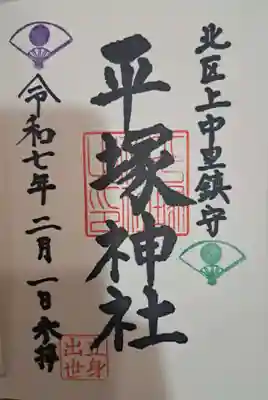 北区上中里鎮守
平塚神社
令和七年二月一日奉拝
立身
出世